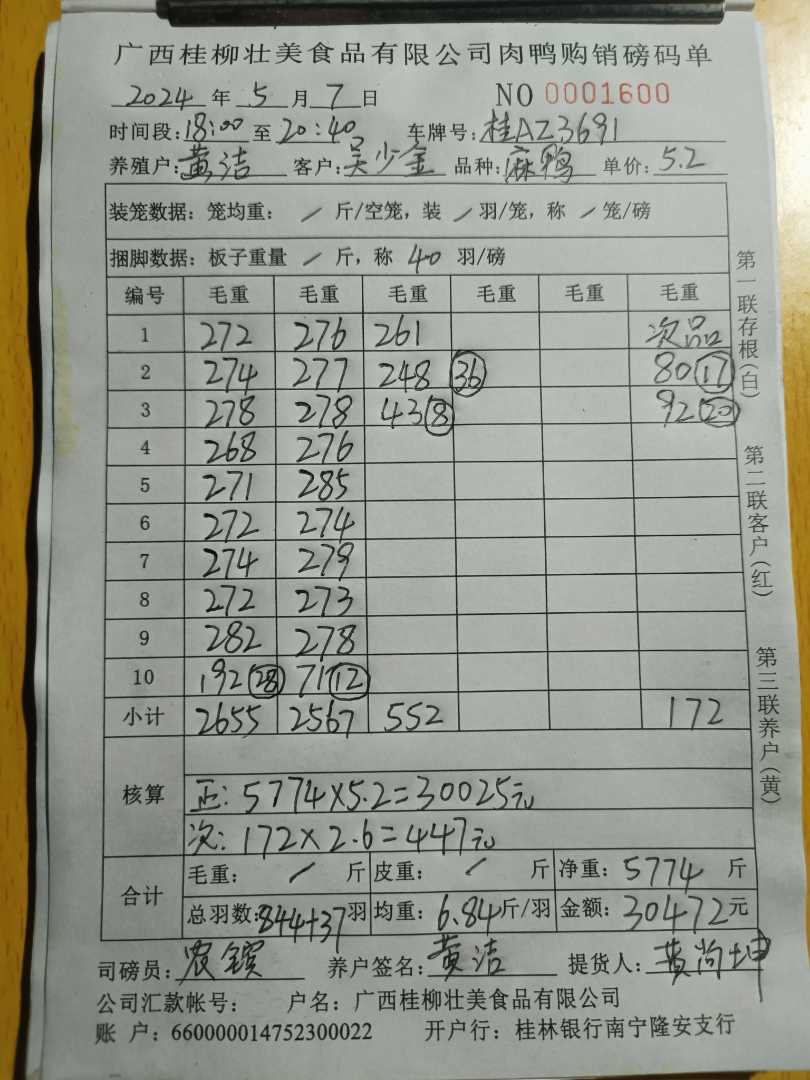 广西桂柳壮美食品有限公司肉鸭购销磅码单
2024 年 5 月 7 日 NO 0001600
时间段:18:00 至 20:40 车牌号:桂AZ3691
养殖户:黄洁 客户:吴少金 品种:麻鸭 单价:5.2
装笼数据:笼均重: / 斤/空笼,装 / 羽/笼,称 / 笼/磅
捆脚数据:板子重量 / 斤,称 40 羽/磅
编号 毛重 毛重 毛重 毛重 毛重 毛重
1 272 276 261 次品
2 274 277 248 36 80 17
3 278 278 43 8 92 20
4 268 276
5 271 285
6 272 274
7 274 279
8 272 273
9 282 278
10 192 28 71 12
小计 2655 2567 552 172
核算
正: 5774×5.2=30025元
次: 172×2.6=447元
合计
毛重: / 斤 皮重: / 斤 净重: 5774 斤
总羽数:844+37羽 均重: 6.84斤/羽 金额: 30472元
司磅员:农镔 养户签名:黄洁 提货人:黄尚坤
公司汇款帐号: 户名:广西桂柳壮美食品有限公司
账 户:660000014752300022 开户行:桂林银行南宁隆安支行
第一联存根(白)
第二联客户(红)
第三联养户(黄)